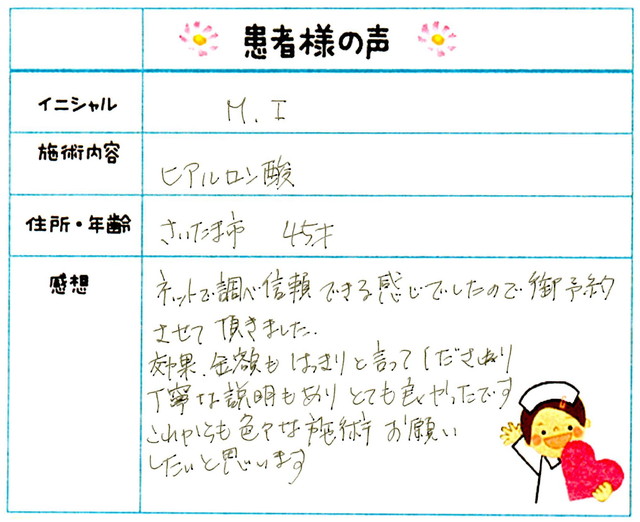 患者様の声
イニシャル
M. I
施術内容
ヒアルロン酸
住所・年齢
さいたま市 45才
感想
ネットで調べ信頼できる感じでしたので御予約
させて頂きました.
効果.金額もはっきりと言ってくださり
丁寧な説明もありとても良かったです
これからも色々な施術お願い
したいと思います